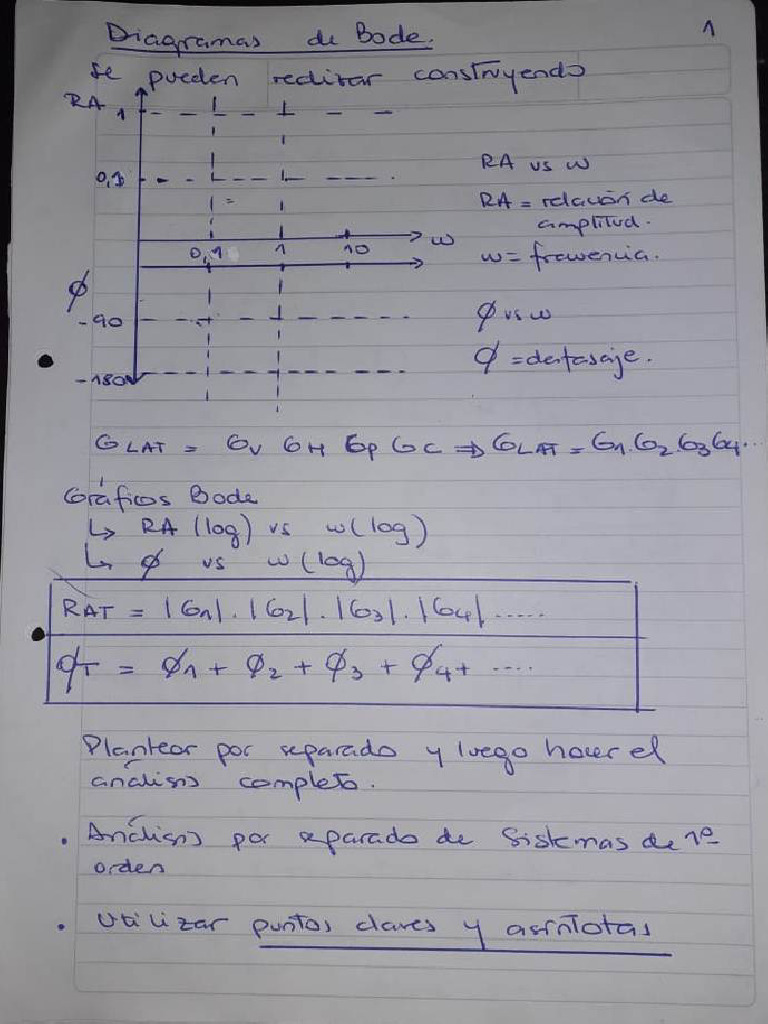 Diagramas de Bode.
1
Se pueden realizar construyendo
RA
1
0,1
RA vs w
RA = relación de
amplitud.
0,1 1 10 w
w = frecuencia.
ϕ
-90
-180
ϕ vs w
ϕ = desfasaje.
GLAT = Gv GH Gp GC ⇒ GLAT = G1.G2 G3 G4...
Gráficos Bode
↳ RA (log) vs w (log)
↳ ϕ vs w (log)
RAT = |G1|.|G2|.|G3|.|G4|.....
ϕT = ϕ1 + ϕ2 + ϕ3 + ϕ4 + ....
Plantear por separado y luego hacer el
análisis completo.
. Análisis por separado de Sistemas de 1º
orden
. Utilizar puntos claves y asíntotas